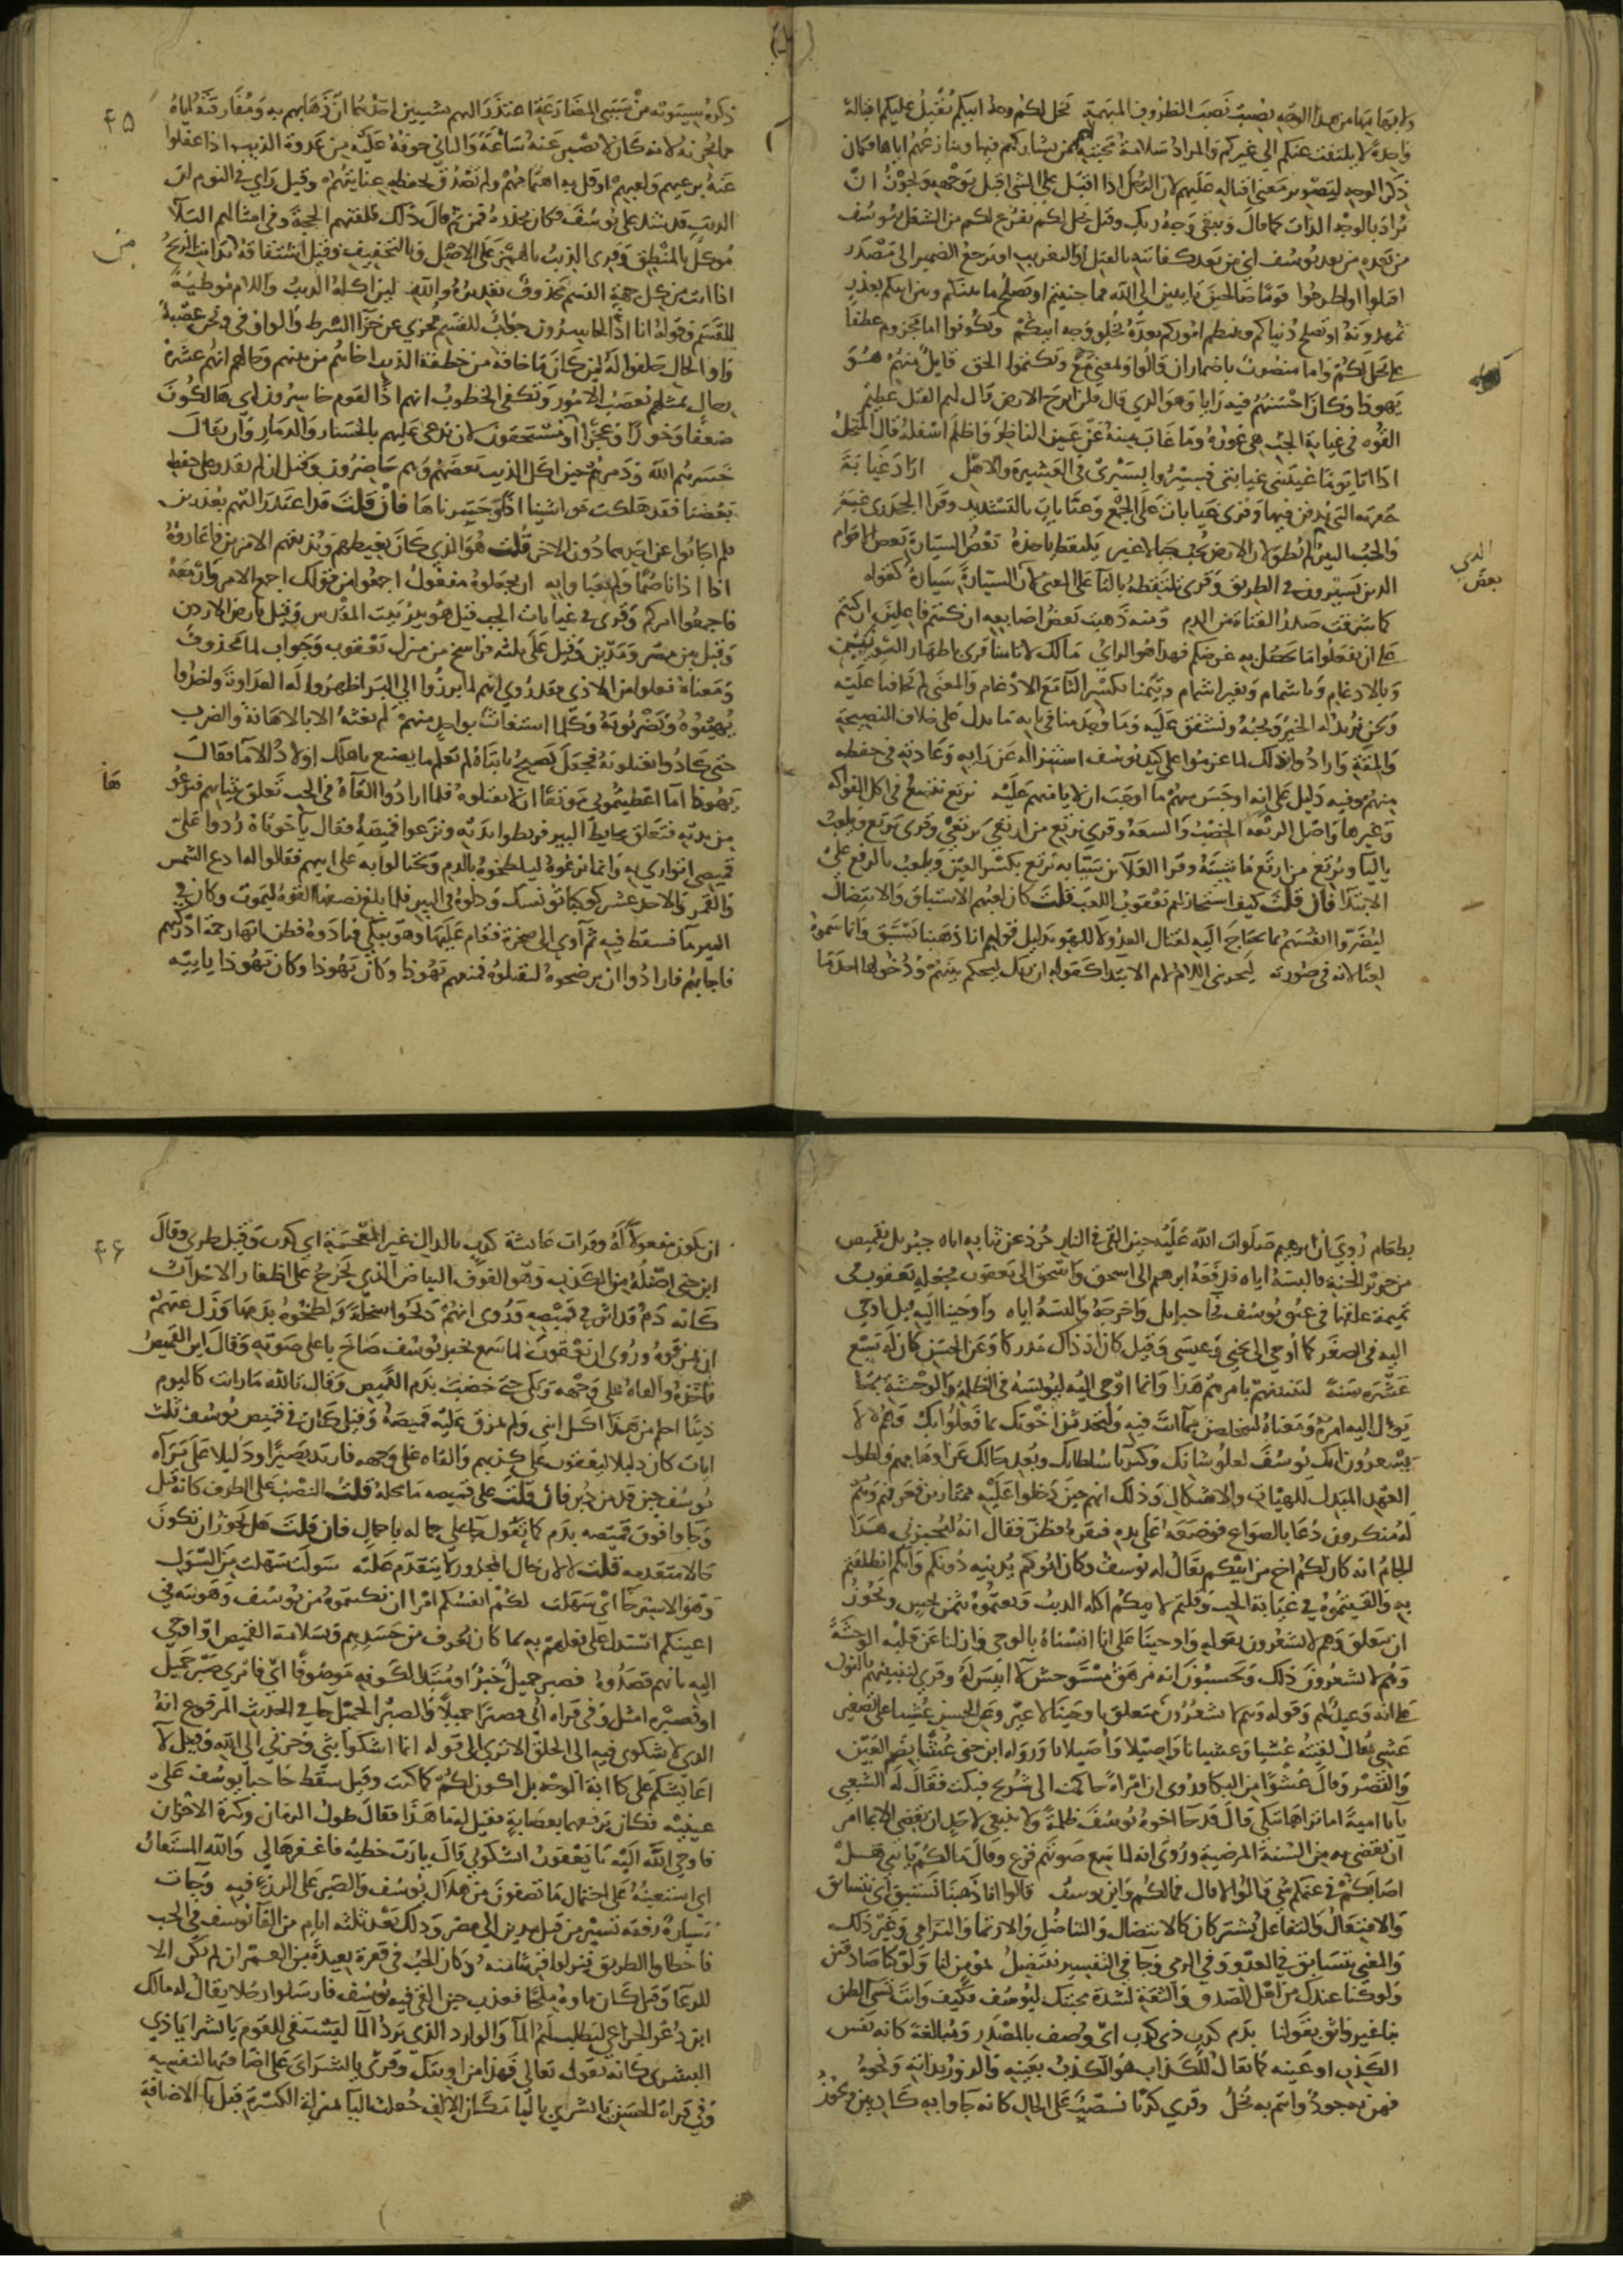 ولابهامها من هذا الوجه نصبت نصب الظروف المبهمة يخل لكم وجه ابيكم يقبل عليكم اقبالة
واحدة لا يلتفت عنكم الى غيركم والمراد سلامة محبته لهم ممن يشاركهم فيها وينازعهم اياها فكان
ذكر الوجه لتصوير معنى اقباله عليهم لان الرجل اذا اقبل على الشي اقبل بوجهه ويجوز ان
يراد بالوجه الذات كما قال ويبقى وجه ربك وقيل يخل لكم يفرغ لكم من الشغل بيوسف
من بعده من بعد يوسف اي من بعد كفايته بالقتل او التغريب او يرجع الضمير الى مصدر
اقتلوا او اطرحوا قوما صالحين تايبين الى الله مما جنيتم او يصلح ما بينكم وبين ابيكم بعذر
تمهدونه او تصلح دنياكم وتنتظم اموركم بعده بخلو وجه ابيكم وتكونوا اما مجزوم عطفا
على يخل لكم واما منصوب باضمار ان والواو بمعنى مع وتكتموا الحق قايل منهم هو
يهوذا وكان احسنهم فيه رايا وهو الذي قال فلن ابرح الارض قال لهم القتل عظيم
القوه في غيابة الجب هي غوره وما غاب منه عن عين الناظر واظلم اسفله قال المنخل
اذا انا يوما غيبتني غيابتي فسيروا بسيري في العشيرة والاهل اراد غيابة
حفرته التي يدفن فيها وقرى غيابات على الجمع وغيابات بالتشديد وقرا الجحدري غيبة
والجب البير لم تطو لان الارض تجب جبا لا غير يلتقطه ياخذه بعض السيارة بعض الاقوام
الذين يسيرون في الطريق وقرى تلتقطه بالتا على المعنى لان بعض السيارة سيارة كقوله
كما شرقت صدر القناة من الدم ومنه ذهبت بعض اصابعه ان كنتم فاعلين ان كنتم
على ان تفعلوا ما يحصل به غرضكم فهذا هو الراي مالك لا تامنا قرى باظهار النونين
وبالادغام وباشمام وبغير اشمام وتيمنا بكسر التا مع الادغام والمعنى لم تخافنا عليه
ونحن نريد له الخير ونحبه ونشفق عليه وما وجد منا في بابه ما يدل على خلاف النصيحة
والمقة وارادوا بذلك لما عزموا على كيد يوسف استنزاله عن رايه وعادته في حفظه
منهم وفيه دليل على انه احس منهم ما اوجب ان لا يامنهم عليه نرتع نتسع في اكل الفواكه
وغيرها واصل الرتعة الخصب والسعة وقرى نرتع من ارتعى يرتعي وقرى يرتع ويلعب
باليا ويرتع من ارتع ماشيته وقرا العلا بن سيابة يرتع بكسر العين ويلعب بالرفع على
الابتدا فان قلت كيف استجاز لهم يعقوب اللعب قلت كان لعبهم الاستباق والانتضال
ليضروا انفسهم بما يحتاج اليه لقتال العدو لا للهو بدليل قولهم انا ذهبنا نستبق وانما سموه
لعبا لانه في صورته ليحزنني اللام لام الابتدا كقوله ان ربك ليحكم بينهم ودخولها احد ما
الذي
بعض
۴۵
ذكره سيبويه من سببي المضارعة اعتذر اليهم بشيين احدهما ان ذهابهم به ومفارقته اياه
مما يحزنه لانه كان لا يصبر عنه ساعة والثاني خوفه عليه من عدوة الذيب اذا غفلوا
عنه برعيهم ولعبهم او قل به اهتمامهم ولم تصدق بحفظه عنايتهم وقيل راى في النوم ان
الذيب قد شد على يوسف وكان يحذره فمن ثم قال ذلك فلقنهم الحجة وفي امثالهم البلا
موكل بالمنطق وقرى الذيب بالهمز على الاصل وبالتخفيف وقيل اشتقاقه من تذاءبت الريح
من
اذا اتت من كل جهة القسم محذوف تقديره والله لين اكله الذيب واللام موطية
للقسم وقوله انا اذا لخاسرون جواب للقسم مجزي عن جزا الشرط والواو في ونحن عصبة
واو الحال حلفوا له لين كان ما خافه من خطفة الذيب اخاهم من بينهم وحالهم انهم عشرة
رجال بمثلهم تعصب الامور وتكفى الخطوب انهم اذا لقوم خاسرون اي هالكون
ضعفا وخورا وعجزا او مستحقون لان يدعى عليهم بالخسار والدمار وان يقال
خسرهم الله ودمرهم حين اكل الذيب بعضهم وهم حاضرون وقيل ان لم نقدر على حفظ
بعضنا فقد هلكت مواشينا اذا وخسرناها فان قلت قد اعتذر اليهم بعذرين
فلم اجابوا عن احدهما دون الاخر قلت هو الذي كان يغيظهم ويذيقهم الامرين فاعاروه
اذنا اذانا صما ولم يعباوا به ان يجعلوه مفعول اجمعوا من قولك اجمع الامر وازمعه
فاجمعوا امركم وقرى في غيابات الجب قيل هو بير بيت المقدس وقيل بارض الاردن
وقيل بين مصر ومدين وقيل على ثلثة فراسخ من منزل يعقوب وجواب لما محذوف
ومعناه فعلوا من الاذى فقد روي انهم لما برزوا الى البر اظهروا له العداوة واخذوا
يهينوه ويضربونه وكلما استغاث بواحد منهم لم يغثه الا بالاهانة والضرب
حتى كادوا يقتلونه فجعل يصيح يا ابتاه لم تعلم ما يصنع بابنك اولاد الاما فقال
يهوذا اما اعطيتموني موثقا ان لا تقتلوه فلما ارادوا القاه في الجب تعلق بثيابهم فنزعو
ها
من يديه فتعلق بحايط البير فربطوا يديه ونزعوا قميصه فقال يا اخوتاه ردوا على
قميصي اتوارى به وانما نزعوه ليلطخوه بالدم ويحتالوا به على ابيهم فقالوا له ادع الشمس
والقمر والاحد عشر كوكبا تونسك ودلوه في البير فلما بلغ نصفها القوه ليموت وكان في
البير ما فسقط فيه ثم آوى الى صخرة فقام عليها وهو يبكي فنادوه فظن انها رحمة ادركتهم
فاجابهم فارادوا ان يرضخوه ليقتلوه فمنعهم يهوذا وكان يهوذا ياتيه
بطعام روي ان ابرهيم صلوات الله عليه حين القي في النار جرد عن ثيابه اتاه جبريل بقميص
من حرير الجنة فالبسه اياه فدفعه ابرهيم الى اسحق واسحق الى يعقوب فجعله يعقوب في
تميمة علقها في عنق يوسف فجا جبرايل واخرجه والبسه اياه واوحينا اليه قيل اوحي
اليه في الصغر كما اوحي الى يحيى وعيسى وقيل كان اذ ذاك مدركا وعن الحسن كان له سبع
عشرة سنة لتنبئنهم بامرهم هذا وانما اوحي اليه ليونسه في الظلمة والوحشة بما
يوول اليه امره ومعناه لتتخلصن مما انت فيه ولتحدثن اخوتك بما فعلوا بك وهم لا
يشعرون انك يوسف لعلو شانك وكبريا سلطانك وبعد حالك عن اوهامهم ولطول
العهد المبدل للهيات والاشكال وذلك انهم حين دخلوا عليه ممتارين فعرفهم وهم
له منكرون دعا بالصواع فوضعه على يده فنقره فطن فقال انه ليخبرني هذا
الجام انه كان لكم اخ من ابيكم يقال له يوسف وكان ابوكم يدنيه دونكم وانكم انطلقتم
به والقيتموه في غيابة الجب وقلتم لابيكم اكله الذيب وبعتموه بثمن بخس ويجوز
ان يتعلق وهم لا يشعرون بقوله واوحينا على انا انسناه بالوحي وازلنا عن قلبه الوحشة
وهم لا يشعرون ذلك ويحسبون انه مرهق مستوحش لا انيس له وقرى لننبئنهم بالنون
على انه وعيد لهم وقوله وهم لا يشعرون متعلق باوحينا لا غير وعن الحسن عشيا على تصغير
عشي يقال لقيته عشيا وعشيانا واصيلا واصيلانا ورواه ابن جني عشا بضم العين
والقصر وقال عشوا من البكا وروي ان امراة حاكمت الى شريح فبكت فقال له الشعبي
يا ابا امية اما تراها تبكي قال قد جا اخوة يوسف ظلمة ولا ينبغي لاحد ان يقضي الا بما امر
ان يقضي به من السنة المرضية وروي انه لما سمع صوتهم فزع وقال مالكم يا بني هل
اصابكم في غنمكم شي قالوا لا قال فمالكم واين يوسف قالوا انا ذهبنا نستبق اي نتسابق
والافتعال والتفاعل يشتركان كالانتضال والتناضل والارتما والترامي وغير ذلك
والمعنى نتسابق في العدو وفي الرمي وجا في التفسير ننتضل بمؤمن لنا ولو كنا صادقين
ولو كنا عندك من اهل الصدق والثقة لشدة محبتك ليوسف فكيف وانت سيئ الظن
بنا غير واثق بقولنا بدم كذب ذي كذب او وصف بالمصدر ومبالغة كانه نفس
الكذب او عينه كما يقال للكذاب هو الكذب بعينه والزور بذاته ونحوه
فهن به جود وانتم به بخل وقرى كذبا نصب على الحال كانه جاوا به كاذبين ويجوز
۴۶
ان يكون مفعولا له وقرات عايشة كدب بالدال غير المعجمة اي كدر وقيل طري وقال
ابن جني اصله من الكدب وهو الفوف البياض الذي يخرج على اظفار الاحداث
كانه دم قد اثر في قميصه وروى انهم ذبحوا سخلة ولطخوه بدمها وزل عنهم
ان يمزقوه وروى ان يعقوب لما سمع بخبر يوسف صاح باعلى صوته وقال اين القميص
فاخذه والقاه على وجهه وبكى حتى خضب بدم القميص وقال تالله ما رايت كاليوم
ذيبا احلم من هذا اكل ابني ولم يمزق عليه قميصه وقيل كان في قميص يوسف ثلث
ايات كان دليلا ليعقوب على كذبهم والقاه على وجهه فارتد بصيرا ودليلا على براة
يوسف حين قد من دبر فان قلت على قميصه ما محله قلت النصب على الظرف كانه قيل
وجاوا فوق قميصه بدم كما تقول جا على جماله باحمال فان قلت هل يجوز ان تكون
حالا متقدمة قلت لا لان حال المجرور لا يتقدم عليه سولت سهلت من السول
وهو الاسترخا اي سهلت لكم انفسكم امرا ان تكتموه من يوسف وهونته في
اعينكم استدل على فعلهم به بما كان يعرف من حسدهم وسلامة القميص او اوحي
اليه بانهم قصدوه فصبر جميل خبر او مبتدا لكونه موصوفا اي فامري صبر جميل
او فصبر امثل وفي قراة ابي فصبرا جميلا والصبر الجميل جا في الحديث المرفوع انه
الذي لا شكوى فيه الى الخلق الا ترى الى قوله انما اشكو بثي وحزني الى الله وقيل لا
اعايشكم على كابة الوجه بل اكون لكم كما كنت وقيل سقط حاجبا يوسف على
عينيه فكان يرفعهما بعصابة فقيل له ما هذا فقال طول الزمان وكثرة الاحزان
فاوحى الله اليه يا يعقوب اتشكوني قال يا رب خطية فاغفرها لي والله المستعان
اي استعينه على احتمال ما تصفون من هلاك يوسف والصبر على الرزء فيه وجات
سيارة رفقة تسير من قبل مدين الى مصر وذلك بعد ثلثة ايام من القا يوسف في الجب
فاخطاوا الطريق فنزلوا قريبا منه وكان الجب في قفرة بعيدة من العمران لم يكن الا
للرعا وقيل كان ماوه ملحا فعذب حين القي فيه يوسف فارسلوا رجلا يقال له مالك
ابن ذعر الخزاعي ليطلب لهم الما والوارد الذي يرد الما ليستقي للقوم يا بشرا ينادي
البشرى كانه يقول تعالي فهذا من اونتك وقرى يا بشراي على اضافتها لنفسه
وفي قراة للحسن يا بشري باليا مكان الالف جعلت اليا بمنزلة الكسرة قبل يا الاضافة